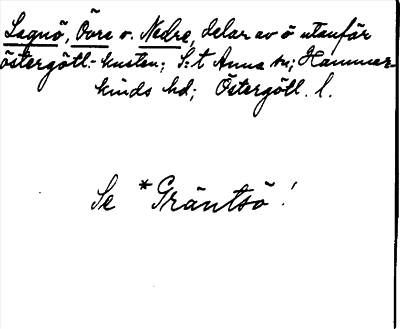 Lagnö, Övre o. Nedre, delar av ö utanför
östergötl.-kusten; S:t Anna sn; Hammar-
kinds hd; Östergötl. l.
Se *Gräntsö!